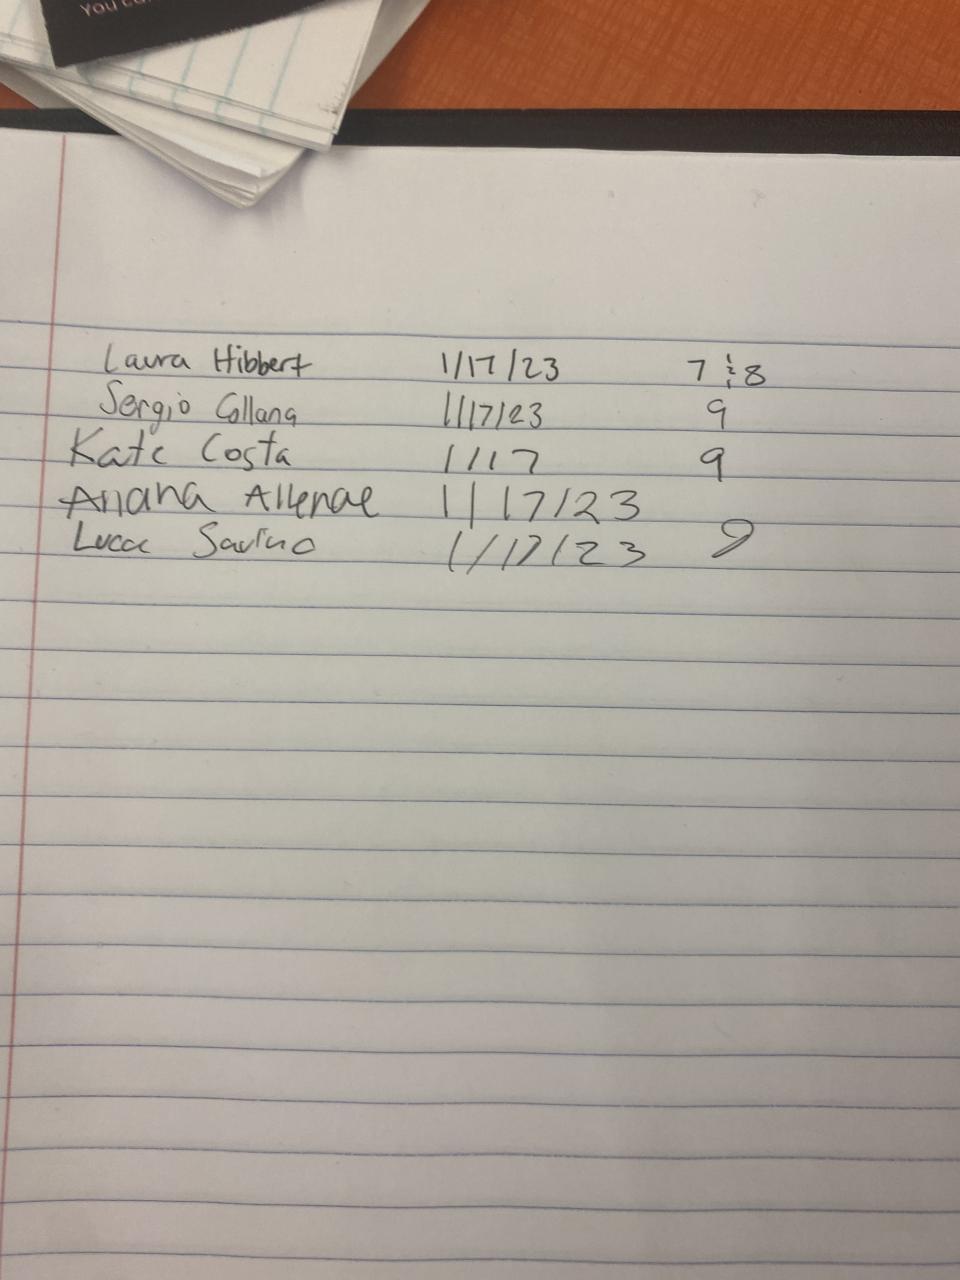 You
Laura Hibbert 1/17/23 7 & 8
Sergio Collana 1/17/23 9
Kate Costa 1/17 9
Ariana Allenae 1/17/23
Luca Savino 1/17/23 9